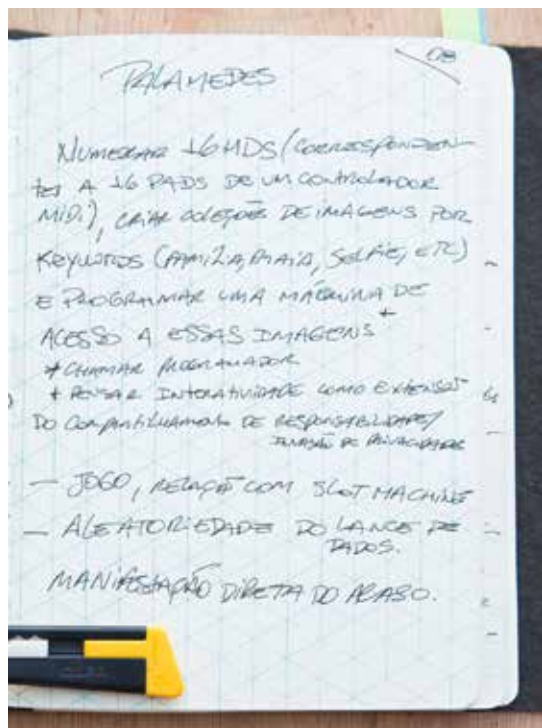 08
PALAMEDES
NUMERAR 16 HDS (CORRESPONDEN-
TES A 16 PADS DE UM CONTROLADOR
MIDI), CRIAR COLEÇÕES DE IMAGENS POR
KEYWORDS (FAMÍLIA, PRAIA, SELFIE, ETC)
E PROGRAMAR UMA MÁQUINA DE
ACESSO A ESSAS IMAGENS +
* CHAMAR PROGRAMADOR
+ PENSAR INTERATIVIDADE COMO EXTENSÃO
DO COMPARTILHAMENTO DE RESPONSABILIDADE/
INVASÃO DE PRIVACIDADE
— JOGO, RELAÇÃO COM SLOT MACHINE
— ALEATORIEDADE DO LANCE DE
DADOS.
MANIFESTAÇÃO DIRETA DO ACASO.